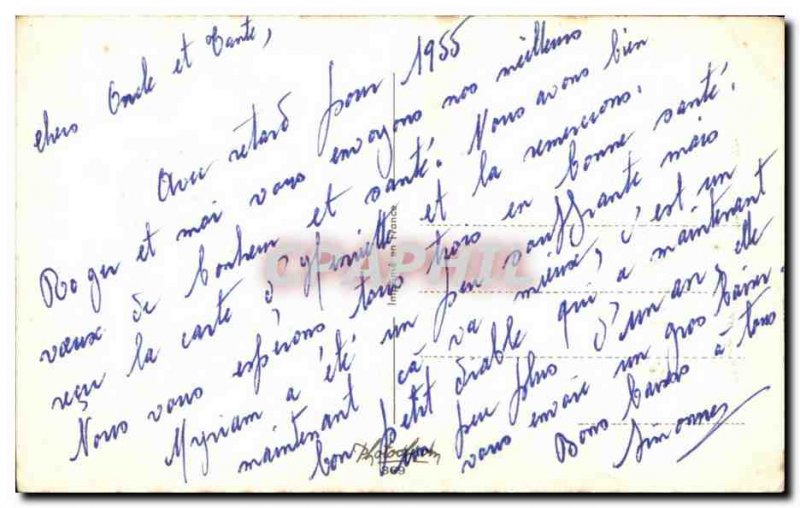 chers Oncle et Tante,
Avec retard pour 1955
Roger et moi vous envoyons nos meilleurs
vœux de bonheur et santé. Nous avons bien
reçu la carte d' et la remercions.
Nous vous espérons tous trois en bonne santé.
Myriam a été un peu souffrante mais
maintenant ça va mieux, c'est un
bon petit diable qui a maintenant
un peu plus d'un an, elle
vous envoie un gros baiser.
Bons baisers à tous
Simonne
Imprimé en France
CPAPHIL
869